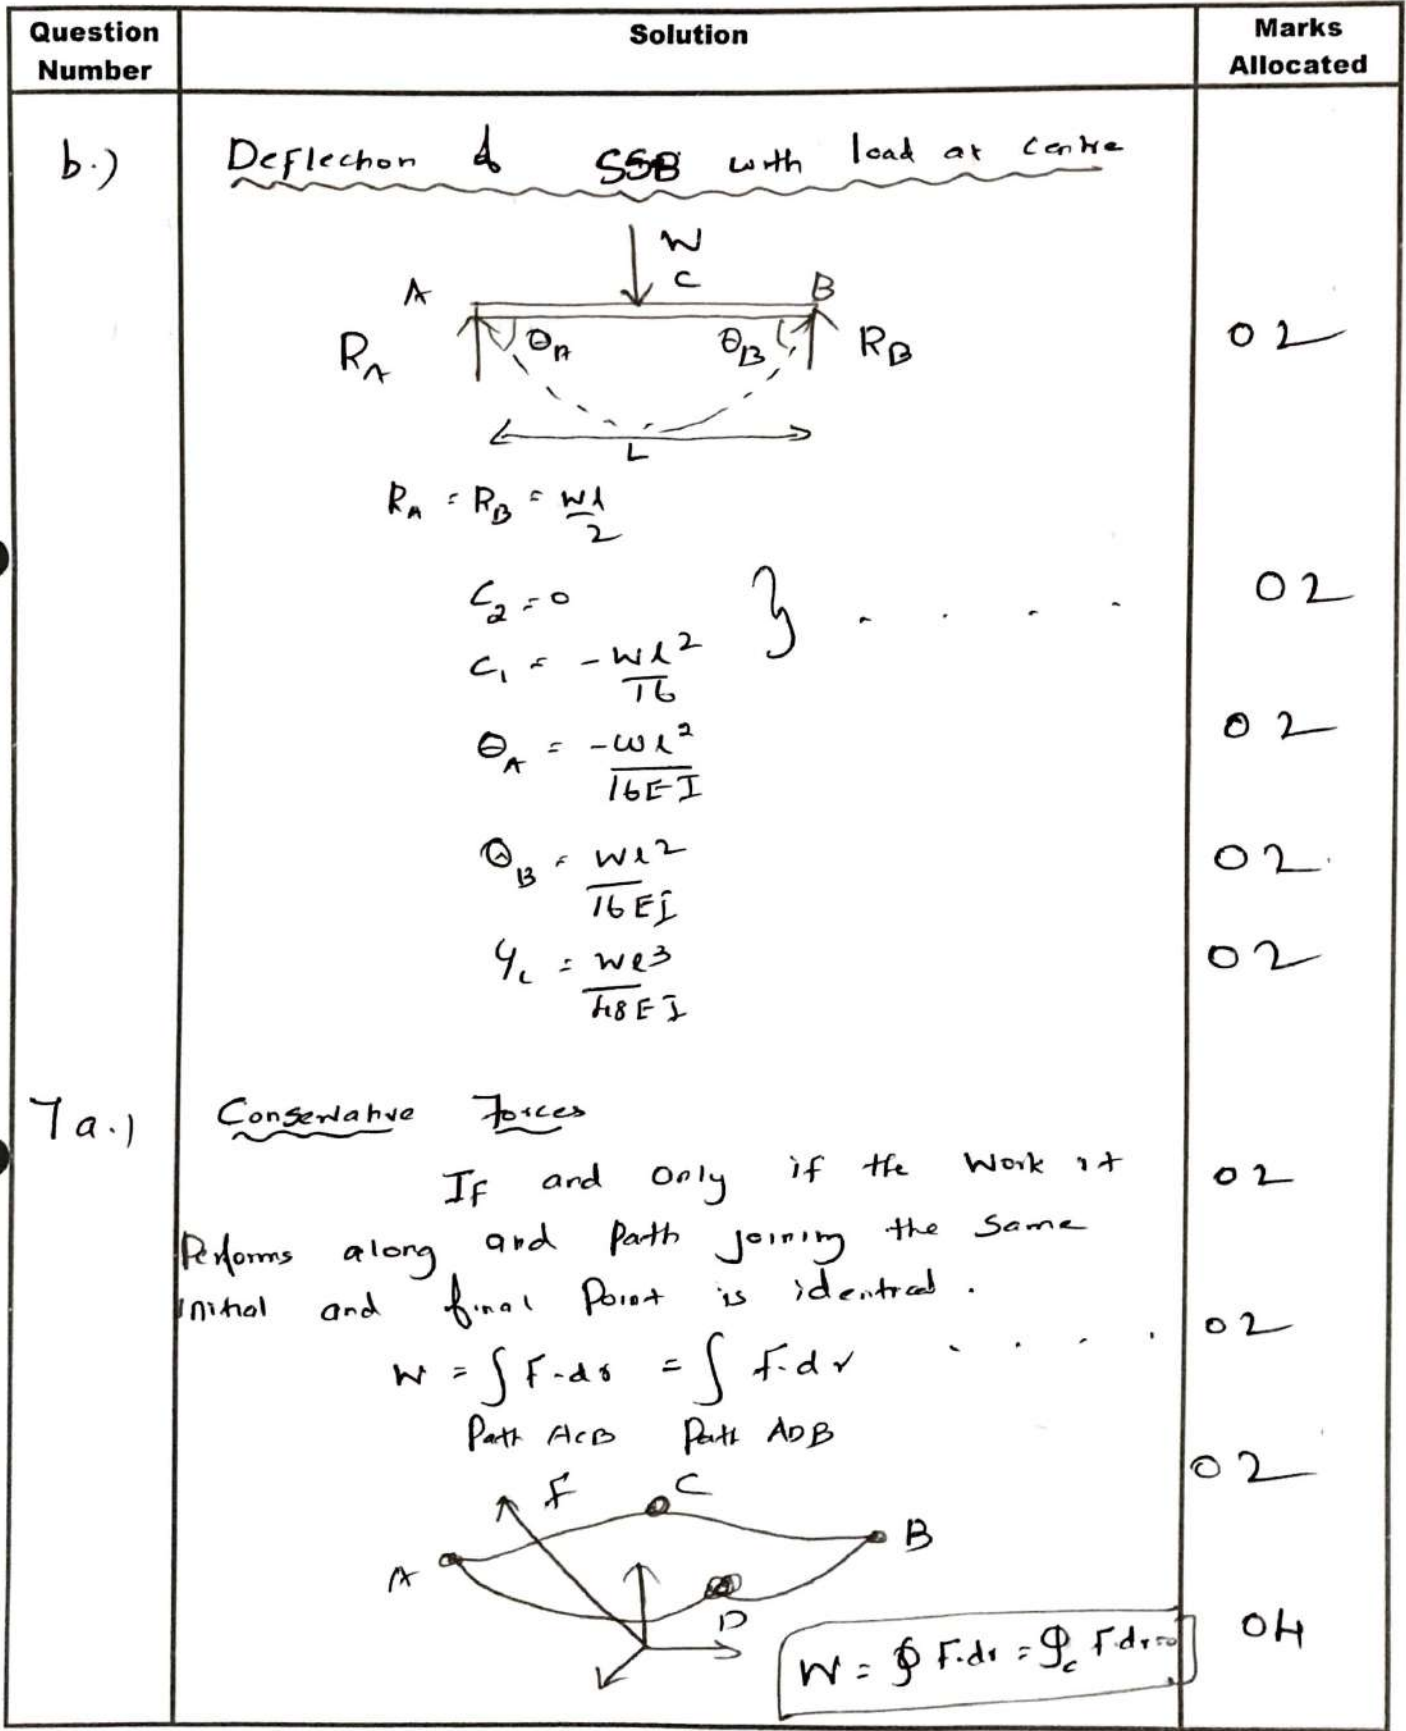 Question Number
Solution
Marks Allocated
b.)
Deflection of SSB with load at centre
W
A
C
B
R_A
θ_A
θ_B
R_B
02
L
R_A = R_B = wl/2
C_2 = 0
02
C_1 = -wl²/16
θ_A = -wl²/16EI
02
θ_B = wl²/16EI
02
y_c = wl³/48EI
02
7a.)
Conservative Forces
If and only if the work it
02
Performs along and Path joining the same
initial and final Point is identical.
02
W = ∫ F.dr = ∫ F.dr
Path ACB Path ADB
02
F
C
B
A
D
W = ∮ F.dr = ∮_c F.dr=0
04